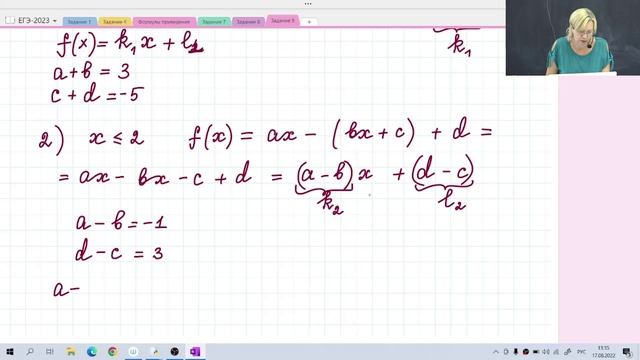 ЕГЭ-2023 Задание 1 Задание 4 Формулы приведения Задание 7 Задание 6 Задание 9
f(x) = k₁x + l₁
k₁
a+b = 3
c+d = -5
2) x ≤ 2 f(x) = ax - (bx + c) + d =
= ax - bx - c + d = (a - b)x + (d - c)
k₂ l₂
a - b = -1
d - c = 3
a -
РУС 11:15
17.08.2022